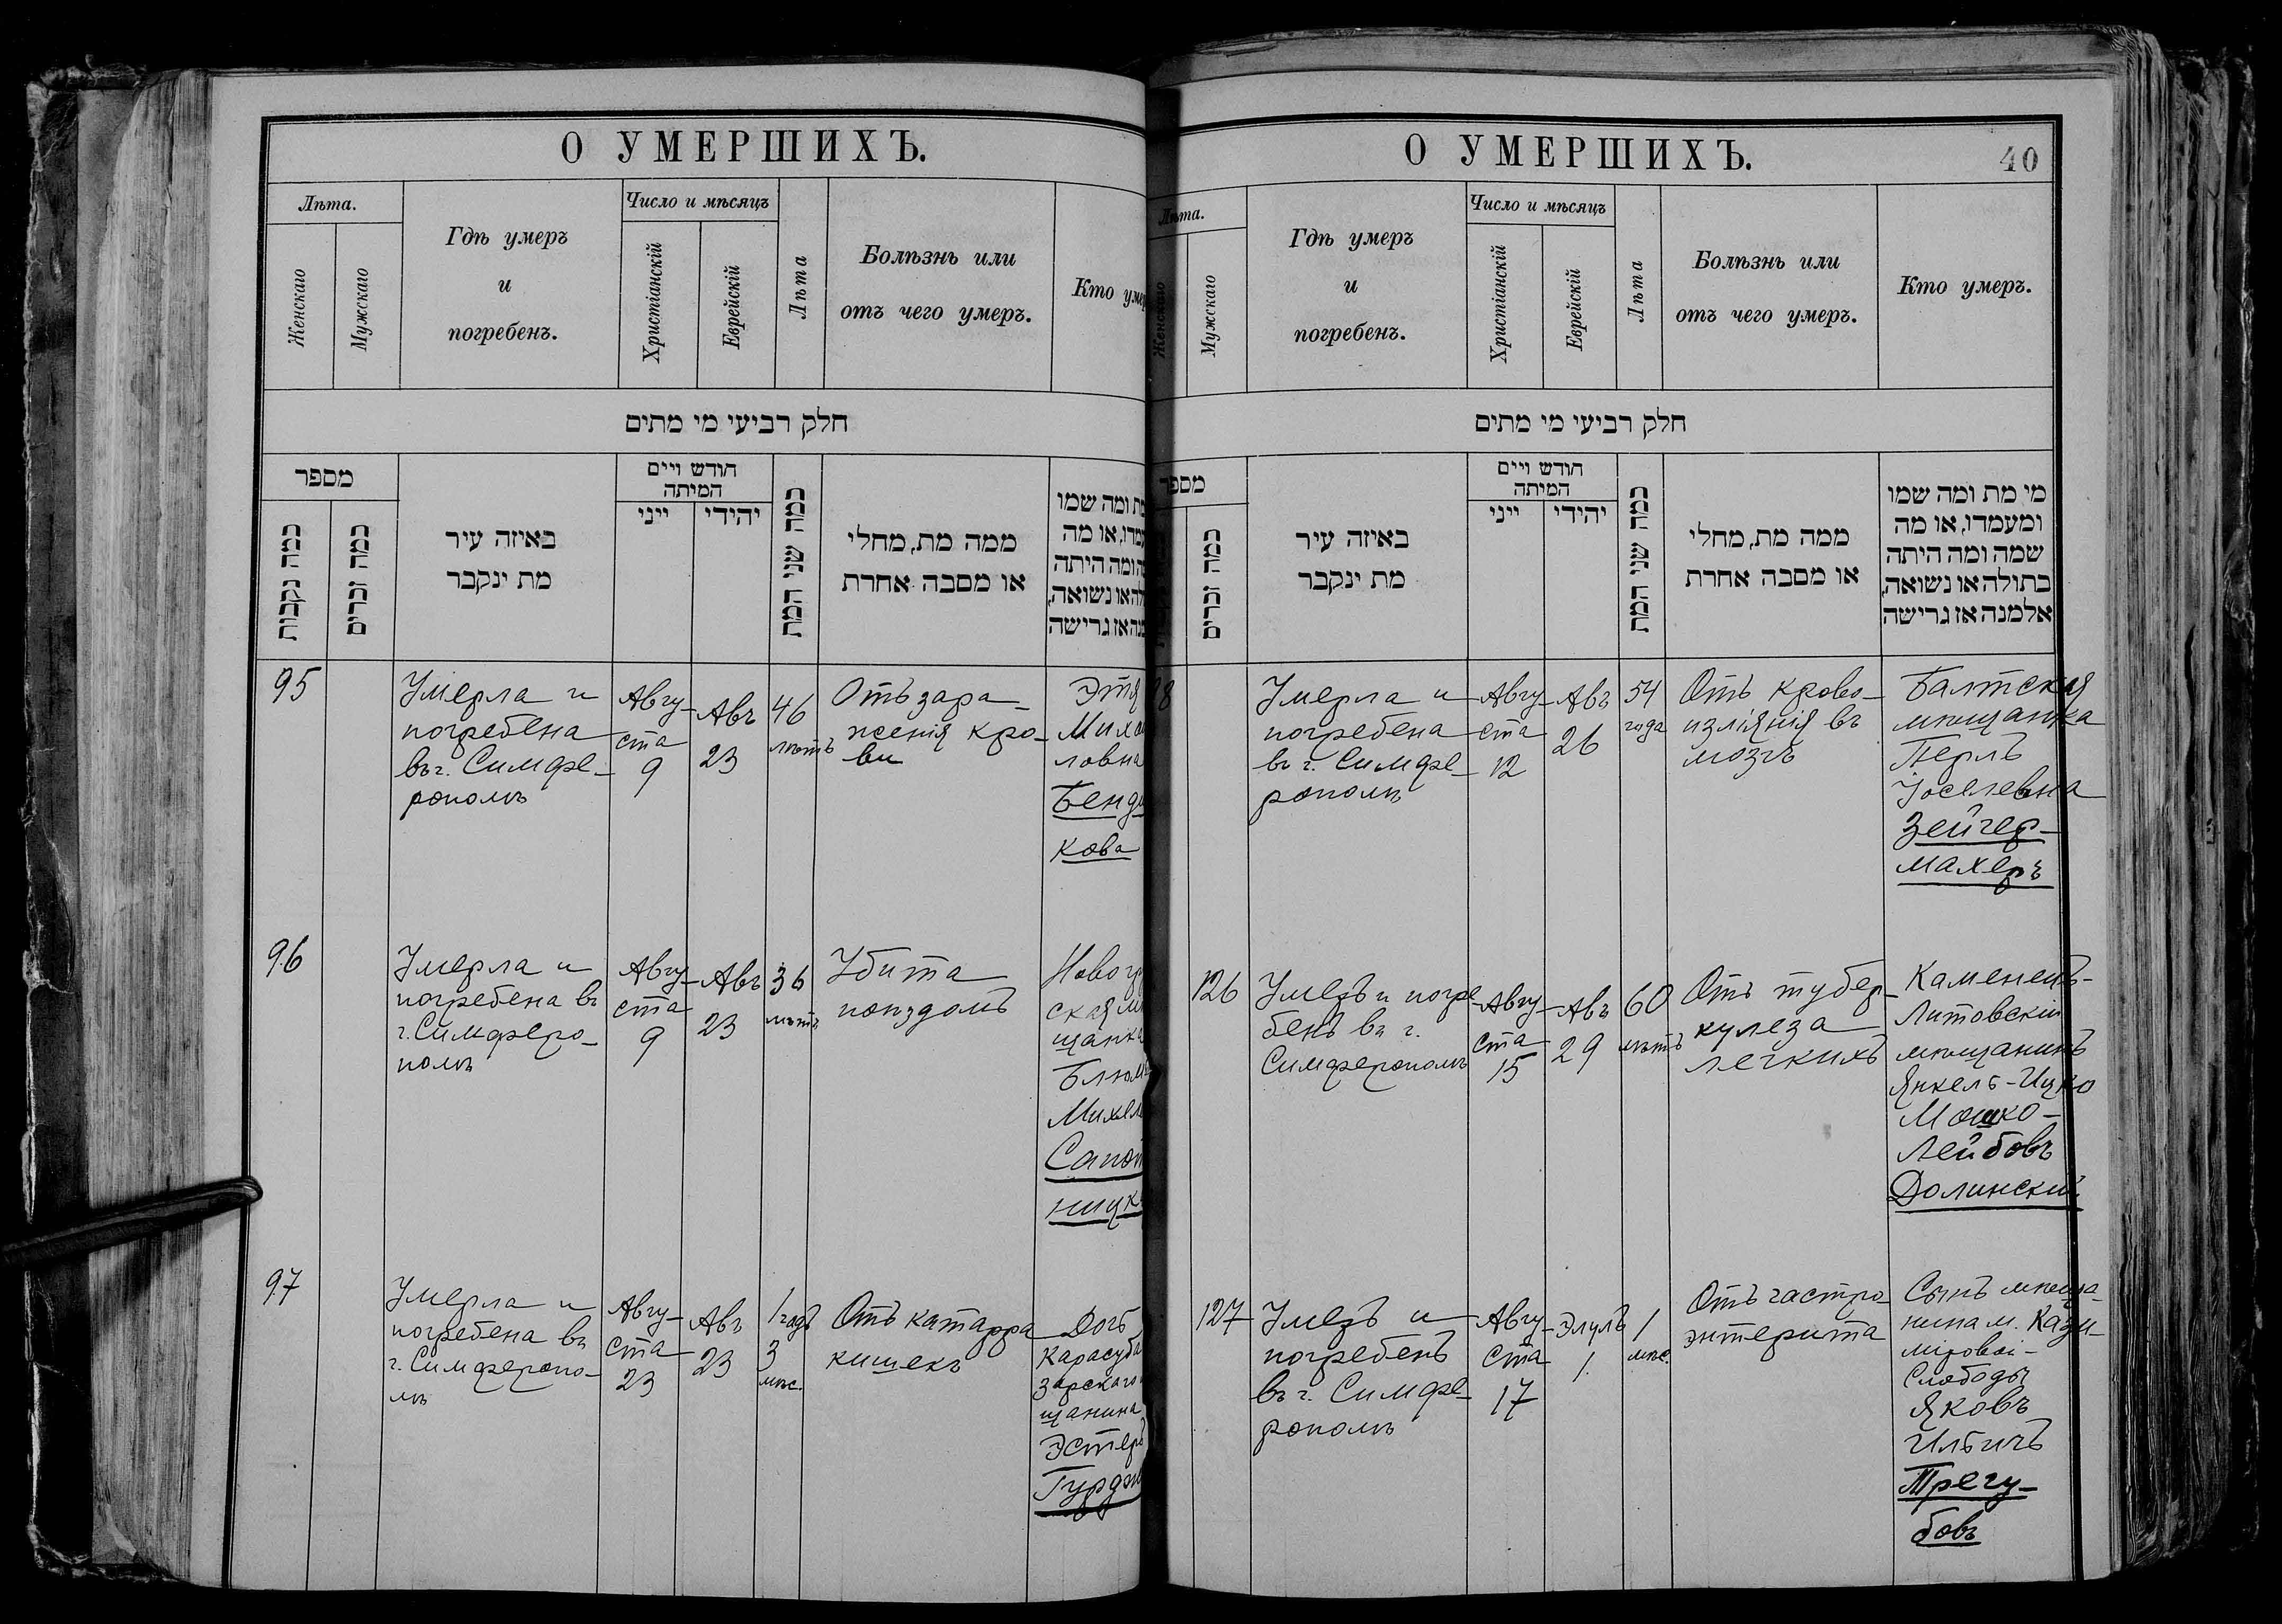 О УМЕРШИХЪ.
Лѣта.
Женскаго
Мужскаго
Гдѣ умеръ
и
погребенъ.
Число и мѣсяцъ
Христіанскій
Еврейскій
Лѣта
Болѣзнь или
отъ чего умеръ.
Кто умер
חלק רביעי מי מתים
מספר
כמה נקבות
כמה זכרים
באיזה עיר
מת ינקבר
חודש ויים
המיתה
ייני
יהודי
כמה שני המת
ממה מת, מחלי
או מסבה אחרת
מת ומה שמו
עמדו, או מה
ה ומה היתה
לה או נשואה,
מנה אז גרישה
95
Умерла и
погребена
въ г. Симфе-
рополѣ
Авгу-
ста
9
Авъ
23
46
лѣтъ
Отъ зара-
женія кро-
ви
Этя
Миха
ловна
Бенди
кова
96
Умерла и
погребена въ
г. Симферо-
полѣ
Авгу-
ста
9
Авъ
23
36
лѣтъ
Убита
поѣздомъ
Новогр
ская мѣ
щанка
Блюм
Михел
Сапот
ницк
97
Умерла и
погребена въ
г. Симферопо-
лѣ
Авгу-
ста
23
Авъ
23
1 годъ
3
мѣс.
Отъ катарра
кишекъ
Дочь
Карасуба
зарскаго
щанина
Эстерь
Гурдж
О УМЕРШИХЪ.
40
Лѣта.
Женскаго
Мужскаго
Гдѣ умеръ
и
погребенъ.
Число и мѣсяцъ
Христіанскій
Еврейскій
Лѣта
Болѣзнь или
отъ чего умеръ.
Кто умеръ.
חלק רביעי מי מתים
מספר
כמה זכרים
באיזה עיר
מת ינקבר
חודש ויים
המיתה
ייני
יהודי
כמה שני המת
ממה מת, מחלי
או מסבה אחרת
מי מת ומה שמו
ומעמדו, או מה
שמה ומה היתה
בתולה או נשואה,
אלמנה אז גרישה
8
Умерла и
погребена
въ г. Симфе-
рополѣ
Авгу-
ста
12
Авъ
26
54
года
Отъ крово-
изліянія въ
мозгъ
Балтская
мѣщанка
Перль
Іоселевна
Зейгер-
махеръ
126
Умеръ и погре-
бенъ въ г.
Симферополѣ
Авгу-
ста
15
Авъ
29
60
лѣтъ
Отъ тубер-
кулеза
легкихъ
Каменецъ-
Литовскій
мѣщанинъ
Янкель-Ицко
Мошко-
Лейбовъ
Долинскій
127
Умеръ и
погребенъ
въ г. Симфе-
рополѣ
Авгу-
ста
17
Элулъ
1.
1
мѣс.
Отъ гастро-
энтерита
Сынъ мѣща-
нина м. Кази-
міровой-
Слободы
Яковъ
Ильичъ
Трегу-
бовъ